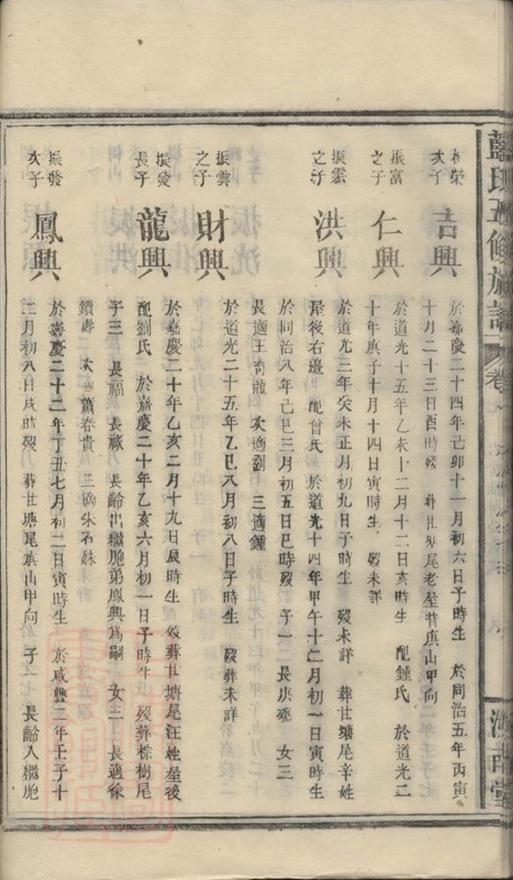 藍氏五修族譜 卷
汝南堂
振榮
次子
吉興
於嘉慶二十四年己卯十一月初六日子時生 於同治五年丙寅
十月二十三日酉時歿 葬廿塘尾老屋背眞山甲向
振富
之子
仁興
於道光十五年乙未十二月十二日亥時生 配鍾氏 於道光二
十年庚子十月十四日寅時生 歿未詳
振雲
之子
洪興
於道光三年癸未正月初九日子時生 歿未詳 葬廿塘尾辛姓
屋後右邊 配曾氏 於道光十四年甲午十二月初一日寅時生
於同治八年己巳三月初五日巳時歿 子一 長庚 女三
長適王 次適劉 三適鍾
振雲
之子
財興
於道光二十五年乙巳八月初八日子時生 歿葬未詳
振發
長子
龍興
於嘉慶二十年乙亥二月十九日辰時生 歿葬廿塘尾汪姓屋後
配劉氏 於嘉慶二十年乙亥六月初一日子時生 歿葬棕樹尾
子三 長福 長祿 長齡出繼胞弟鳳興爲嗣 女三 長適徐
鎖壽 次適蕭春貴 三適朱石妹
振發
次子
鳳興
於嘉慶二十二年丁丑七月初二日寅時生 於咸豐二年壬子十
二月初八日戌時歿 葬廿塘尾眞山甲向 子 長齡入繼胞